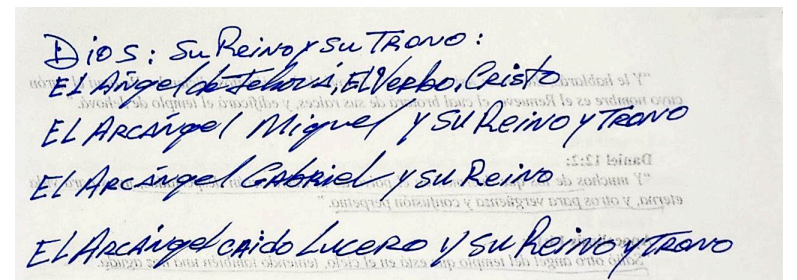 Dios: Su Reino y su Trono:
EL Ángel de Jehová, El Verbo, Cristo
EL Arcángel Miguel y su Reino y Trono
El Arcángel Gabriel y su Reino
El Arcángel caido Lucero y su Reino y Trono